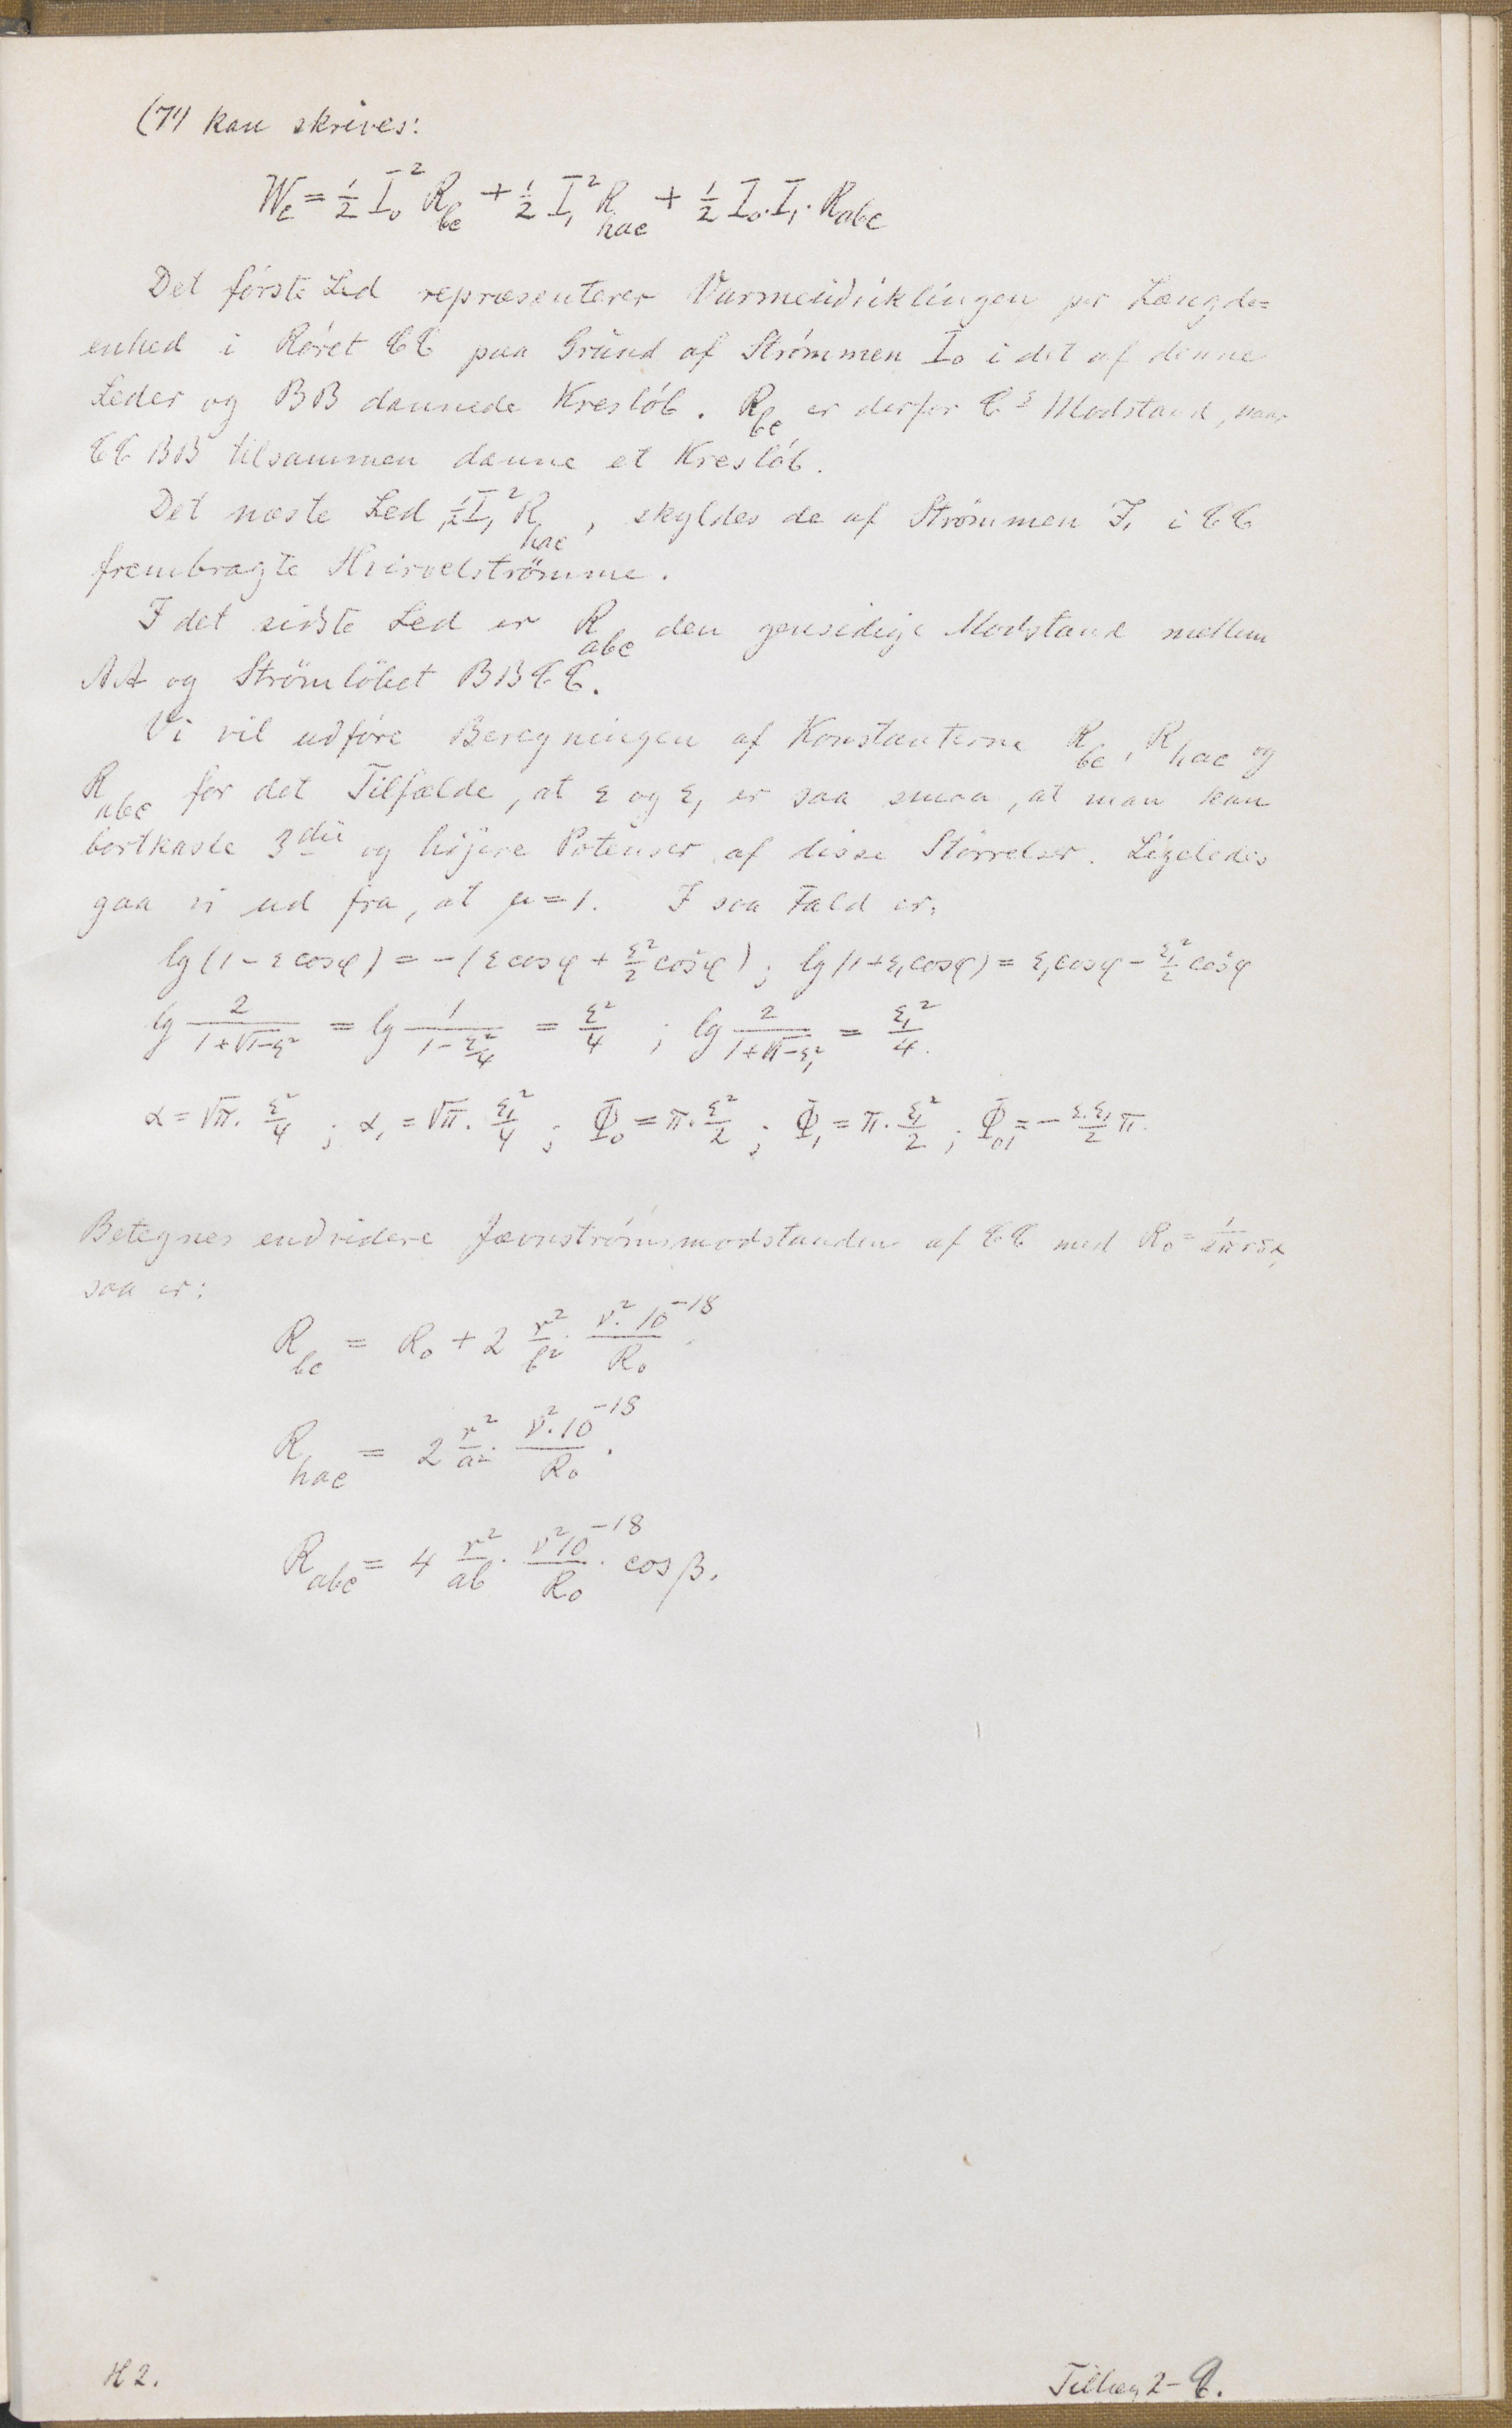 (7) kan skrives:
W_c = ½ I₀² R_bc + ½ I₁² R_hac + ½ I₀·I₁·R_abc
Det første Led repræsenterer Varmeudviklingen pr Længde=
enhed i Røret CC paa Grund af Strømmen I₀ i det af denne
Leder og BB dannede Kresløb. R_bc er derfor C's Modstand, naar
CC BB tilsammen danne et Kresløb.
Det næste Led, ½I₁² R_hac, skyldes de af Strømmen I₁ i CC
frembragte Hvirvelstrømme.
I det sidste Led er R_abc den gensidige Modstand mellem
AA og Strømløbet BBCC.
Vi vil udføre Beregningen af Konstanterne R_bc, R_hac og
R_abc for det Tilfælde, at ε og ε₁ er saa smaa, at man kan
bortkaste 3die og højere Potenser af disse Størrelser. Ligeledes
gaa vi ud fra, at μ=1. I saa Fald er:
lg(1-ε cosφ) = -(ε cosφ + ε²/2 cos²φ); lg(1+ε₁cosφ) = ε₁cosφ - ε₁²/2 cos²φ
lg 2/(1+√1-ε²) = lg 1/(1-ε²/4) = ε²/4; lg 2/(1+√1-ε₁²) = ε₁²/4.
α = √π · ε²/4; α₁ = √π · ε₁²/4; Φ₀ = π · ε²/2; Φ₁ = π · ε₁²/2; Φ₀₁ = - ε·ε₁/2 π.
Betegnes endvidere Jævnstrømsmodstanden af CC med R₀ =
saa er:
R_bc = R₀ + 2 r²/b² · ν²·10⁻¹⁸/R₀.
R_hac = 2 r²/a² · ν²·10⁻¹⁸/R₀.
R_abc = 4 r²/ab · ν²10⁻¹⁸/R₀ · cos β.
H2.
Tillæg 2-